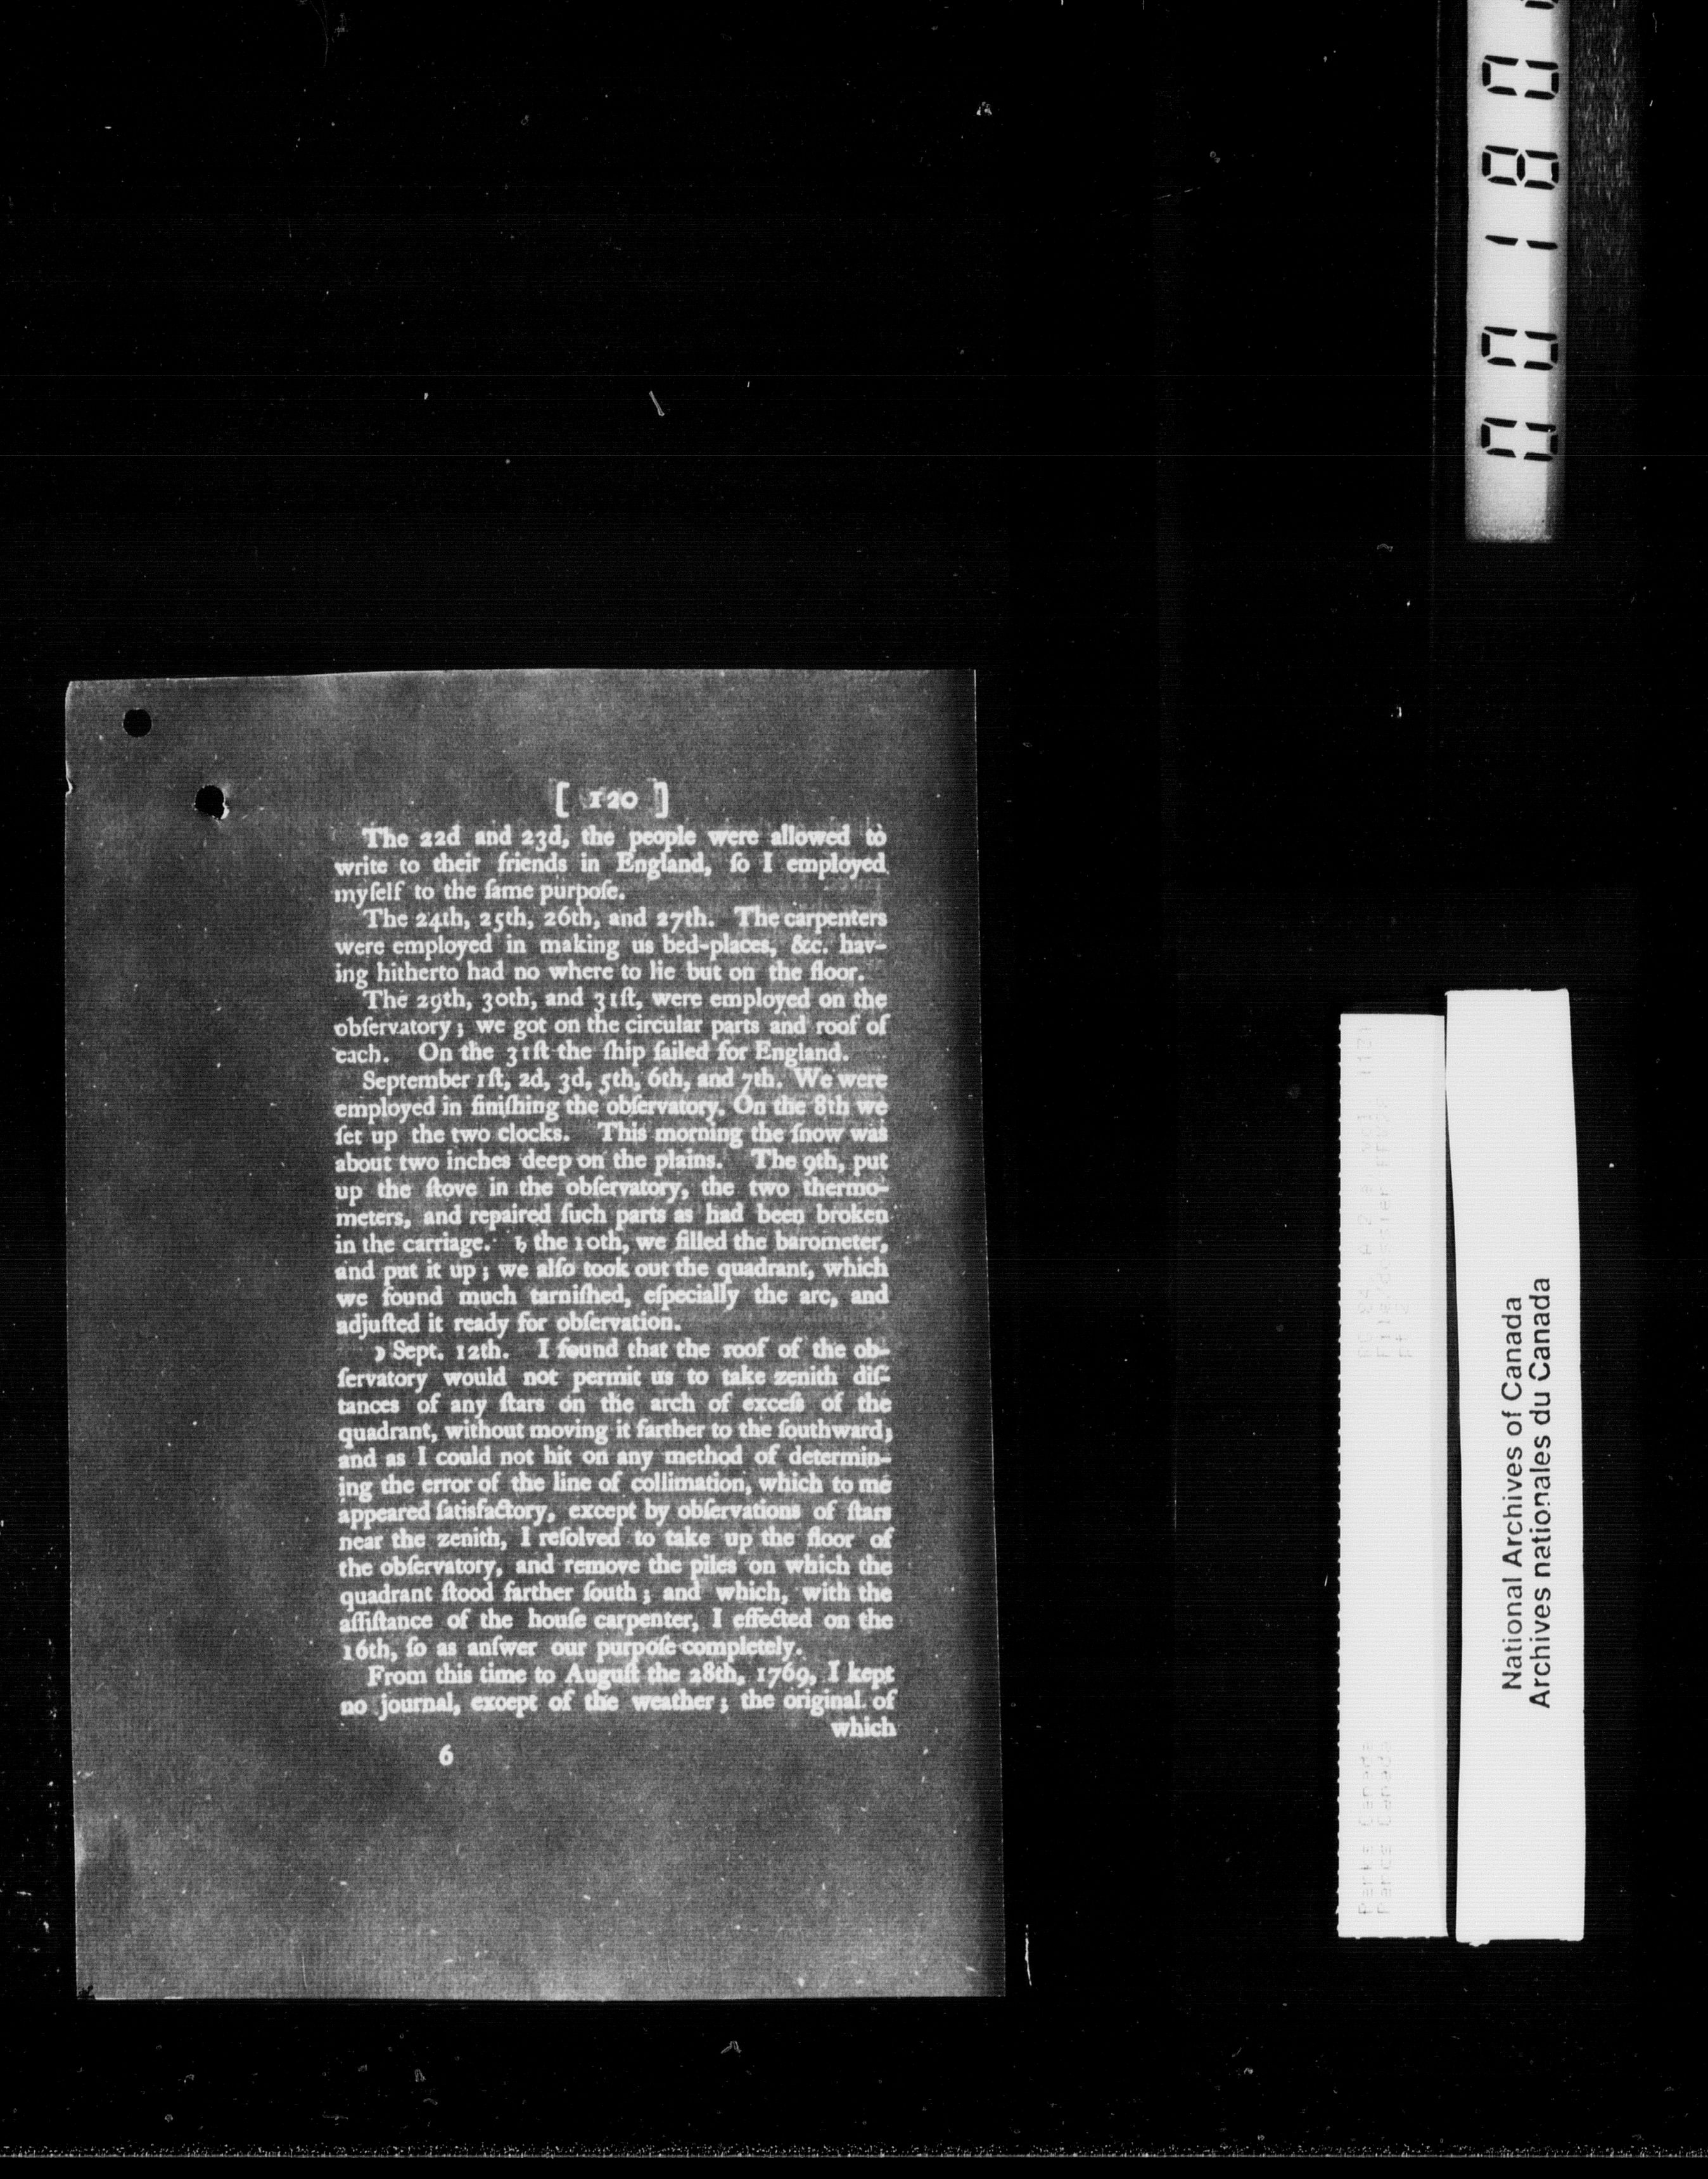 [ 120 ]
The 22d and 23d, the people were allowed to
write to their friends in England, ſo I employed
myſelf to the ſame purpoſe.
The 24th, 25th, 26th, and 27th. The carpenters
were employed in making us bed-places, &c. hav-
ing hitherto had no where to lie but on the floor.
The 29th, 30th, and 31ſt, were employed on the
obſervatory; we got on the circular parts and roof of
each. On the 31ſt the ſhip ſailed for England.
September 1ſt, 2d, 3d, 5th, 6th, and 7th. We were
employed in finiſhing the obſervatory. On the 8th we
ſet up the two clocks. This morning the ſnow was
about two inches deep on the plains. The 9th, put
up the ſtove in the obſervatory, the two thermo-
meters, and repaired ſuch parts as had been broken
in the carriage. ♄ the 10th, we filled the barometer,
and put it up; we alſo took out the quadrant, which
we found much tarniſhed, eſpecially the arc, and
adjuſted it ready for obſervation.
☽ Sept. 12th. I found that the roof of the ob-
ſervatory would not permit us to take zenith diſ-
tances of any ſtars on the arch of exceſs of the
quadrant, without moving it farther to the ſouthward;
and as I could not hit on any method of determin-
ing the error of the line of collimation, which to me
appeared ſatisfactory, except by obſervations of ſtars
near the zenith, I reſolved to take up the floor of
the obſervatory, and remove the piles on which the
quadrant ſtood farther ſouth; and which, with the
aſſiſtance of the houſe carpenter, I effected on the
16th, ſo as anſwer our purpoſe completely.
From this time to Auguſt the 28th, 1769, I kept
no journal, except of the weather; the original of
which
6
00180
Parks Canada
Parcs Canada
National Archives of Canada
Archives nationales du Canada